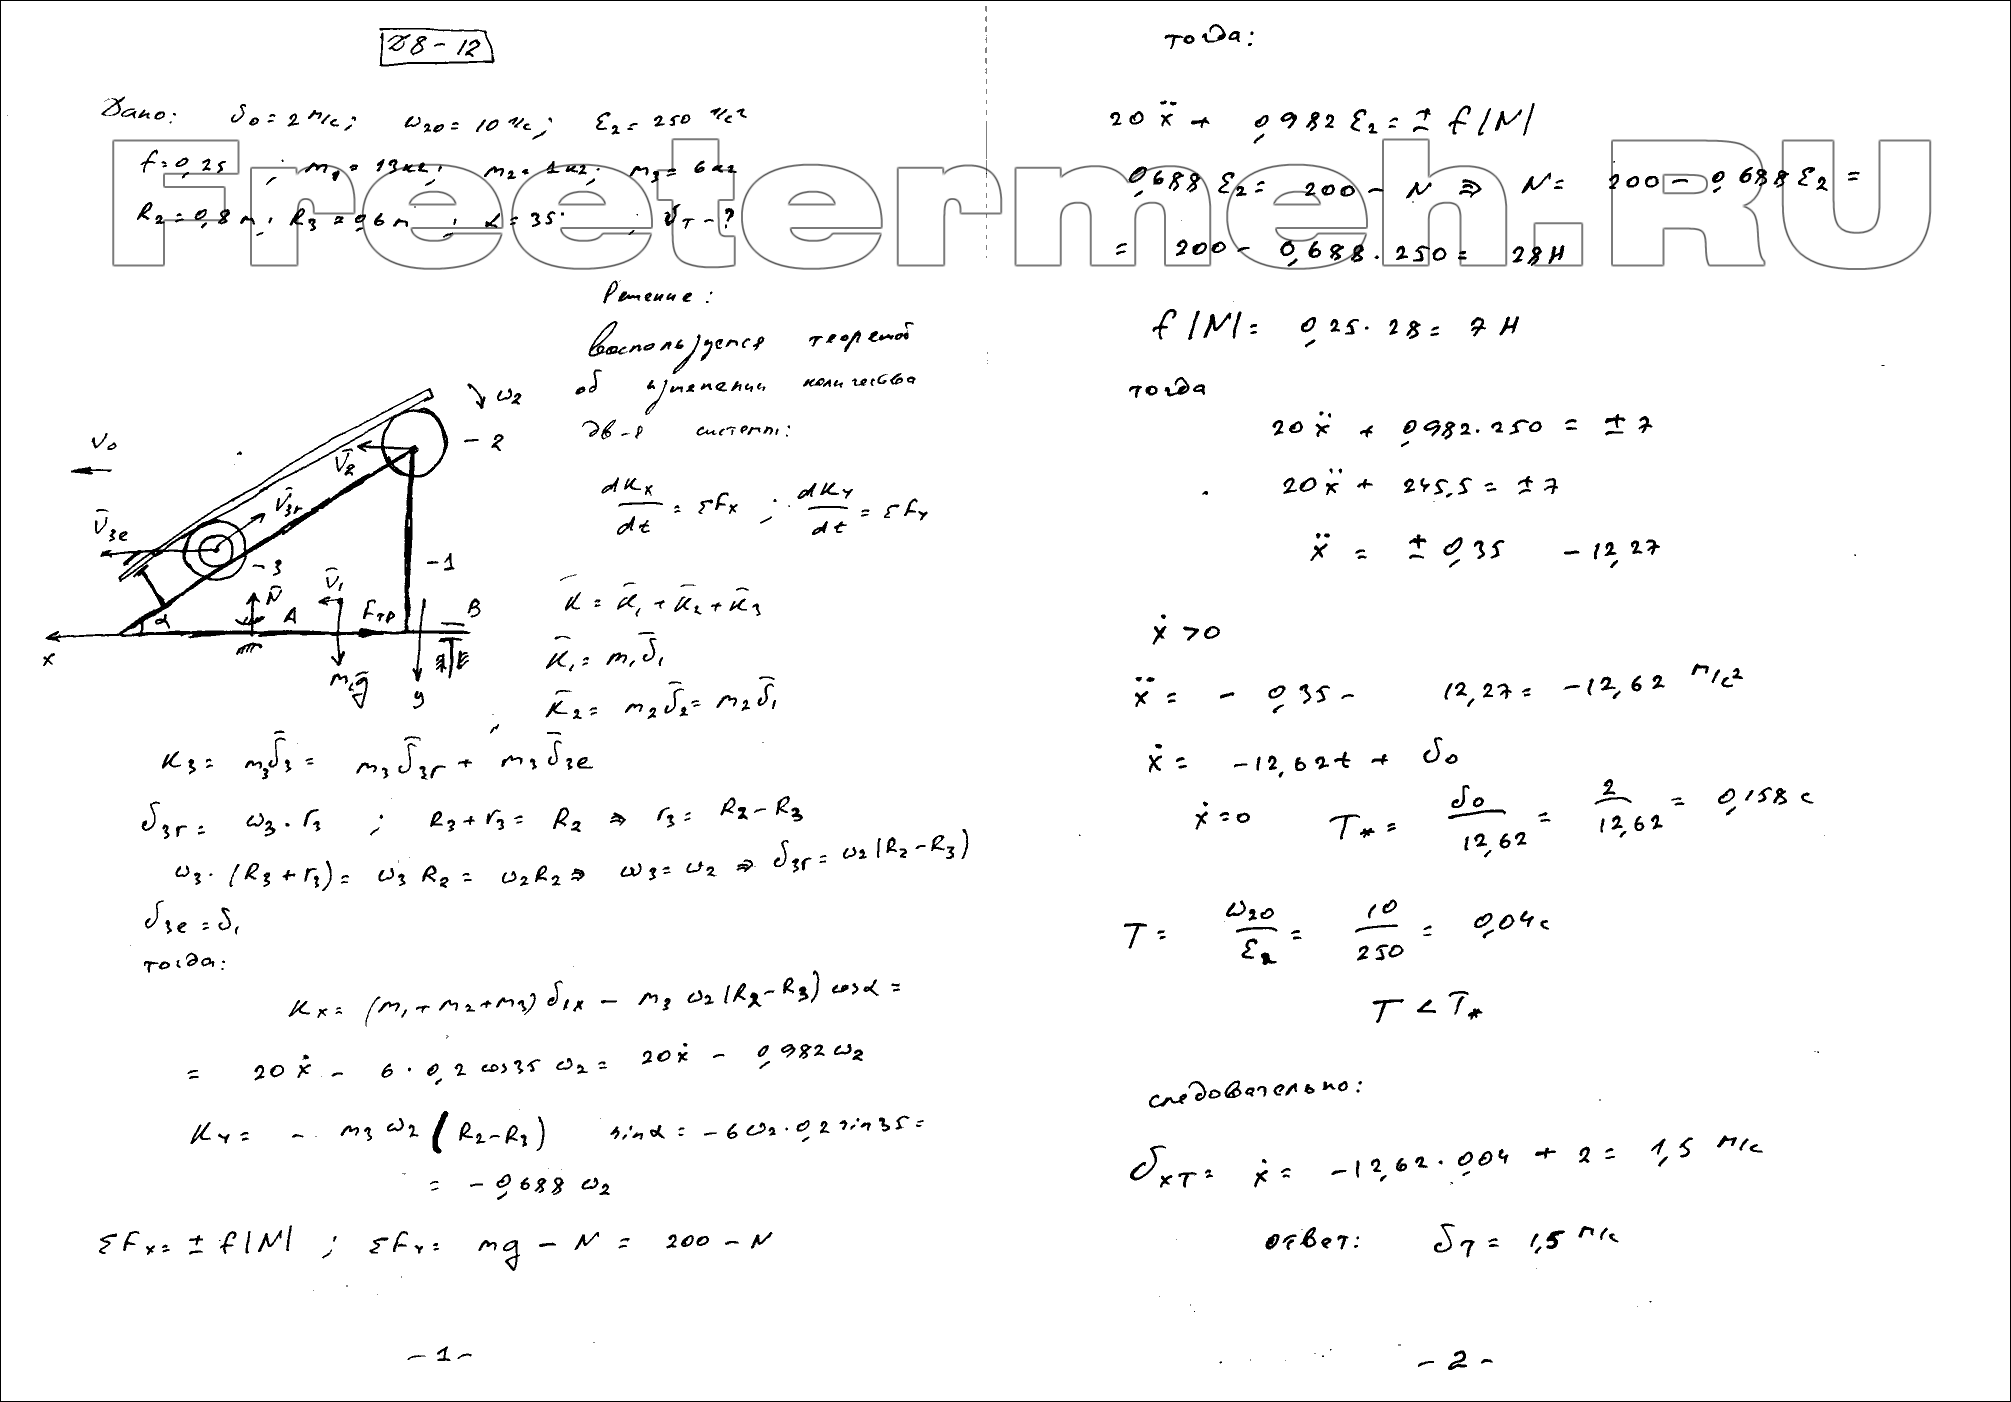 D8-12
Дано: υ₀ = 2 м/с; ω₂₀ = 10 1/с; ε₂ = 250 1/с²
f = 0,25 ; m₁ = 13 кг; m₂ = 1 кг; m₃ = 6 кг
R₂ = 0,8 м; R₃ = 0,6 м ; α = 35° ; υ_T - ?
Freetermeh.RU
Решение:
Воспользуемся теоремой
об изменении количества
дв-я системы:
dKx/dt = ΣFx ; dKy/dt = ΣFy
K̄ = K̄₁ + K̄₂ + K̄₃
K̄₁ = m₁ῡ₁
K̄₂ = m₂ῡ₂ = m₂ῡ₁
ω₂
- 2
V₀
V̄₂
V̄₃r
V̄₃e
- 3
- 1
N̄
V̄₁
α
A
Fтр
B
x
m₁ḡ
y
K₃ = m₃ῡ₃ = m₃ῡ₃r + m₃ῡ₃e
υ₃r = ω₃·r₃ ; R₃ + r₃ = R₂ ⇒ r₃ = R₂ - R₃
ω₃·(R₃ + r₃) = ω₃R₂ = ω₂R₂ ⇒ ω₃ = ω₂ ⇒ υ₃r = ω₂(R₂ - R₃)
υ₃e = υ₁
тогда:
Kx = (m₁ + m₂ + m₃)υ₁x - m₃ω₂(R₂ - R₃)cosα =
= 20ẋ - 6·0,2 cos35 ω₂ = 20ẋ - 0,982ω₂
Ky = - m₃ω₂(R₂ - R₃) sinα = -6ω₂·0,2 sin35 =
= -0,688ω₂
ΣFx = ± f|N| ; ΣFy = mg - N = 200 - N
- 1 -
тогда:
20ẍ + 0,982ε₂ = ± f|N|
0,688ε₂ = 200 - N ⇒ N = 200 - 0,688ε₂ =
= 200 - 0,688·250 = 28 Н
f|N| = 0,25·28 = 7 Н
тогда
20ẍ + 0,982·250 = ± 7
20ẍ + 245,5 = ± 7
ẍ = ± 0,35 - 12,27
ẋ > 0
ẍ = - 0,35 - 12,27 = -12,62 м/с²
ẋ = -12,62t + υ₀
ẋ = 0 T* = υ₀/12,62 = 2/12,62 = 0,158 с
T = ω₂₀/ε₂ = 10/250 = 0,04 с
T < T*
следовательно:
υxT = ẋ = -12,62·0,04 + 2 = 1,5 м/с
ответ: υ_T = 1,5 м/с
- 2 -